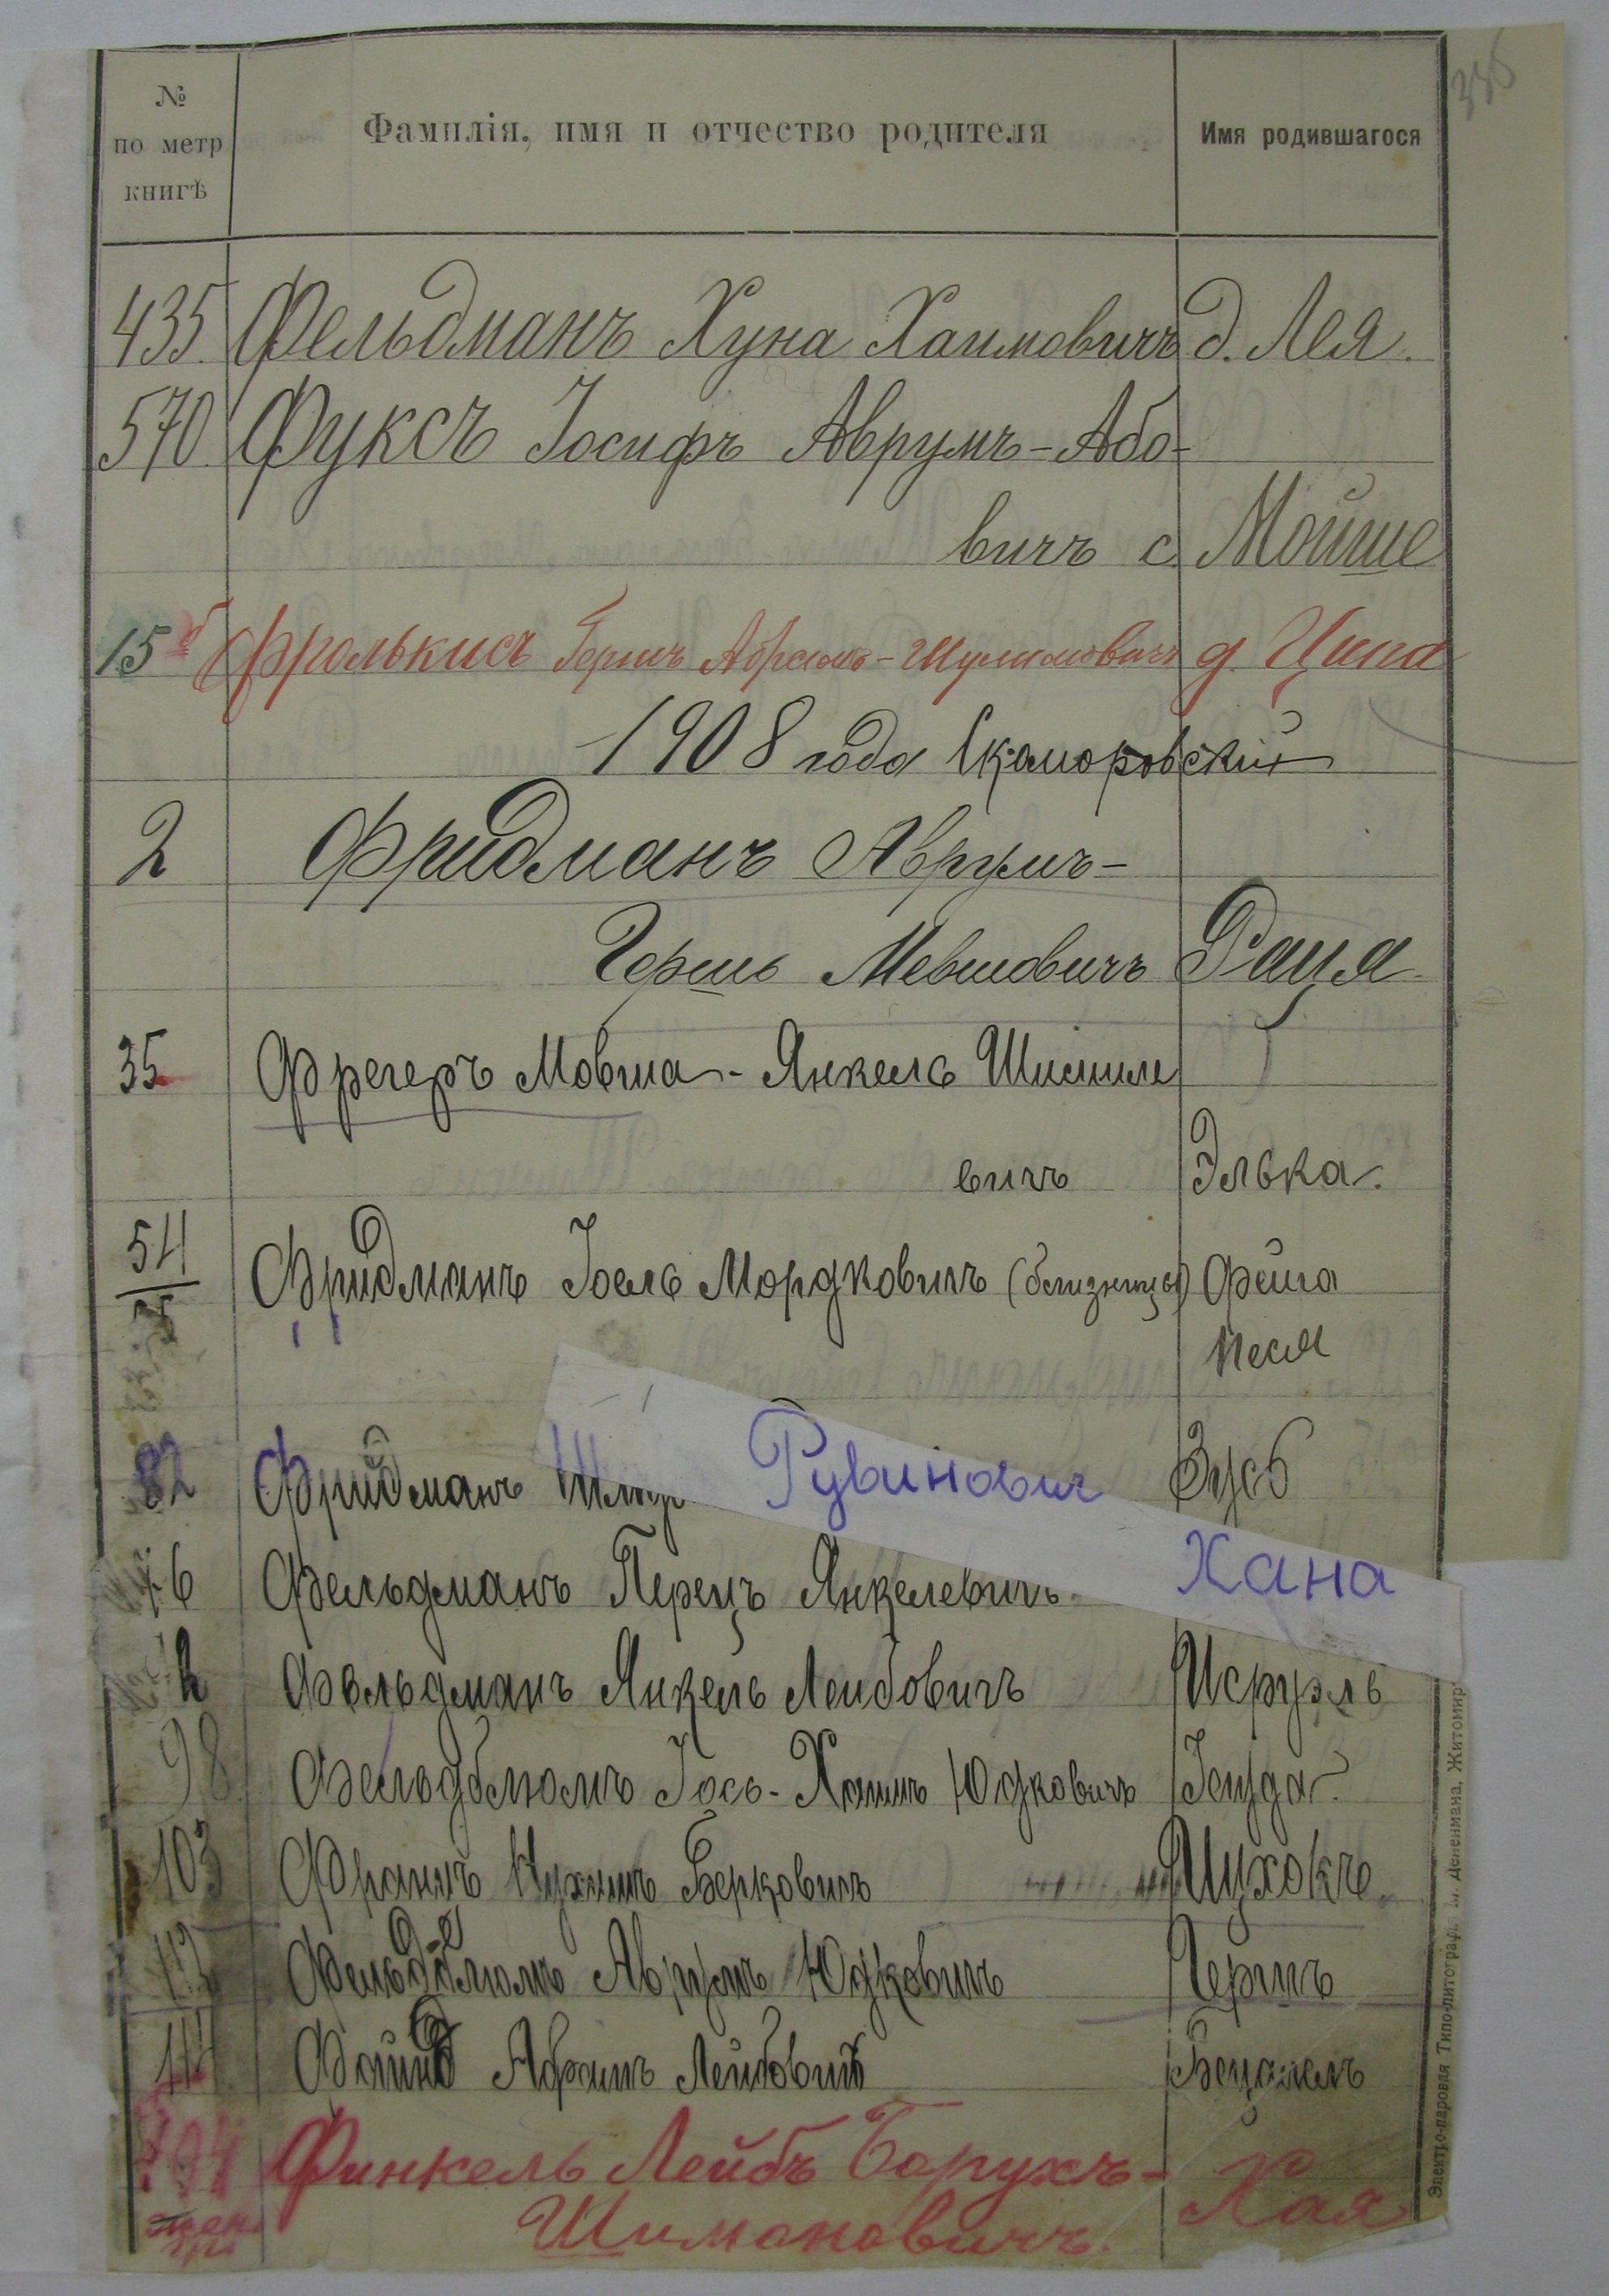 335
№ по метр книгѣ Фамилія, имя и отчество родителя Имя родившагося
435 Фельдманъ Хуна Хаимовичъ д. Лея.
570 Фуксъ Іосифъ Аврумъ-Або-
вичъ с. Мойше
15 Фролькисъ Гершъ Абрамъ-Шулимовичъ д. Ципа
1908 года Скаморовскій
2 Фридманъ Аврумъ-
Гершь Мевшовичъ Рация
35 Фрегеръ Мовша-Янкель Шмиле
вичъ Элька.
54/55 Фридманъ Іоель Мордковичъ (близнецы) Фейга
Песя
82 Фридманъ Рувинович Зусь
Хана
Фельдманъ Перецъ Янкелевичъ
Фельдманъ Янкель Лейбовичъ Исруэль
98 Фельдблюмъ Іось-Хаимъ Юдковичъ
103 Нухимъ Берковичъ
Фельдблюмъ Аврумъ Юдковичъ Гершъ
Абрамъ Лейбовичъ Бецалель
Финкель Лейбъ Борухъ- Хая
Шимоновичъ.
Электро-паровая Типо-литограф. Дененмана, Житомир